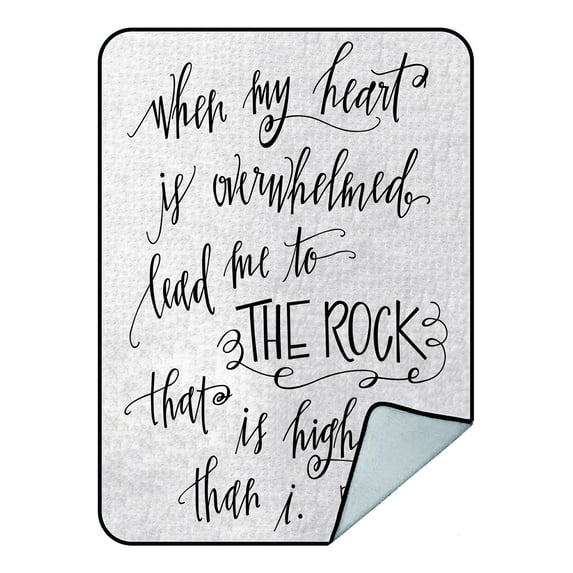 when my heart
is overwhelmed
lead me to
THE ROCK
that is high
than i.